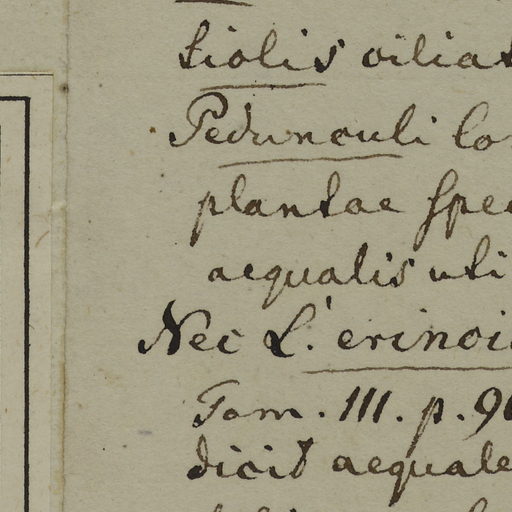 tiolis ciliat
Pedunculi lo
plantae spec
aequalis uti
Nec L. erinoi
Tom. III. p. 90
dicit aequale